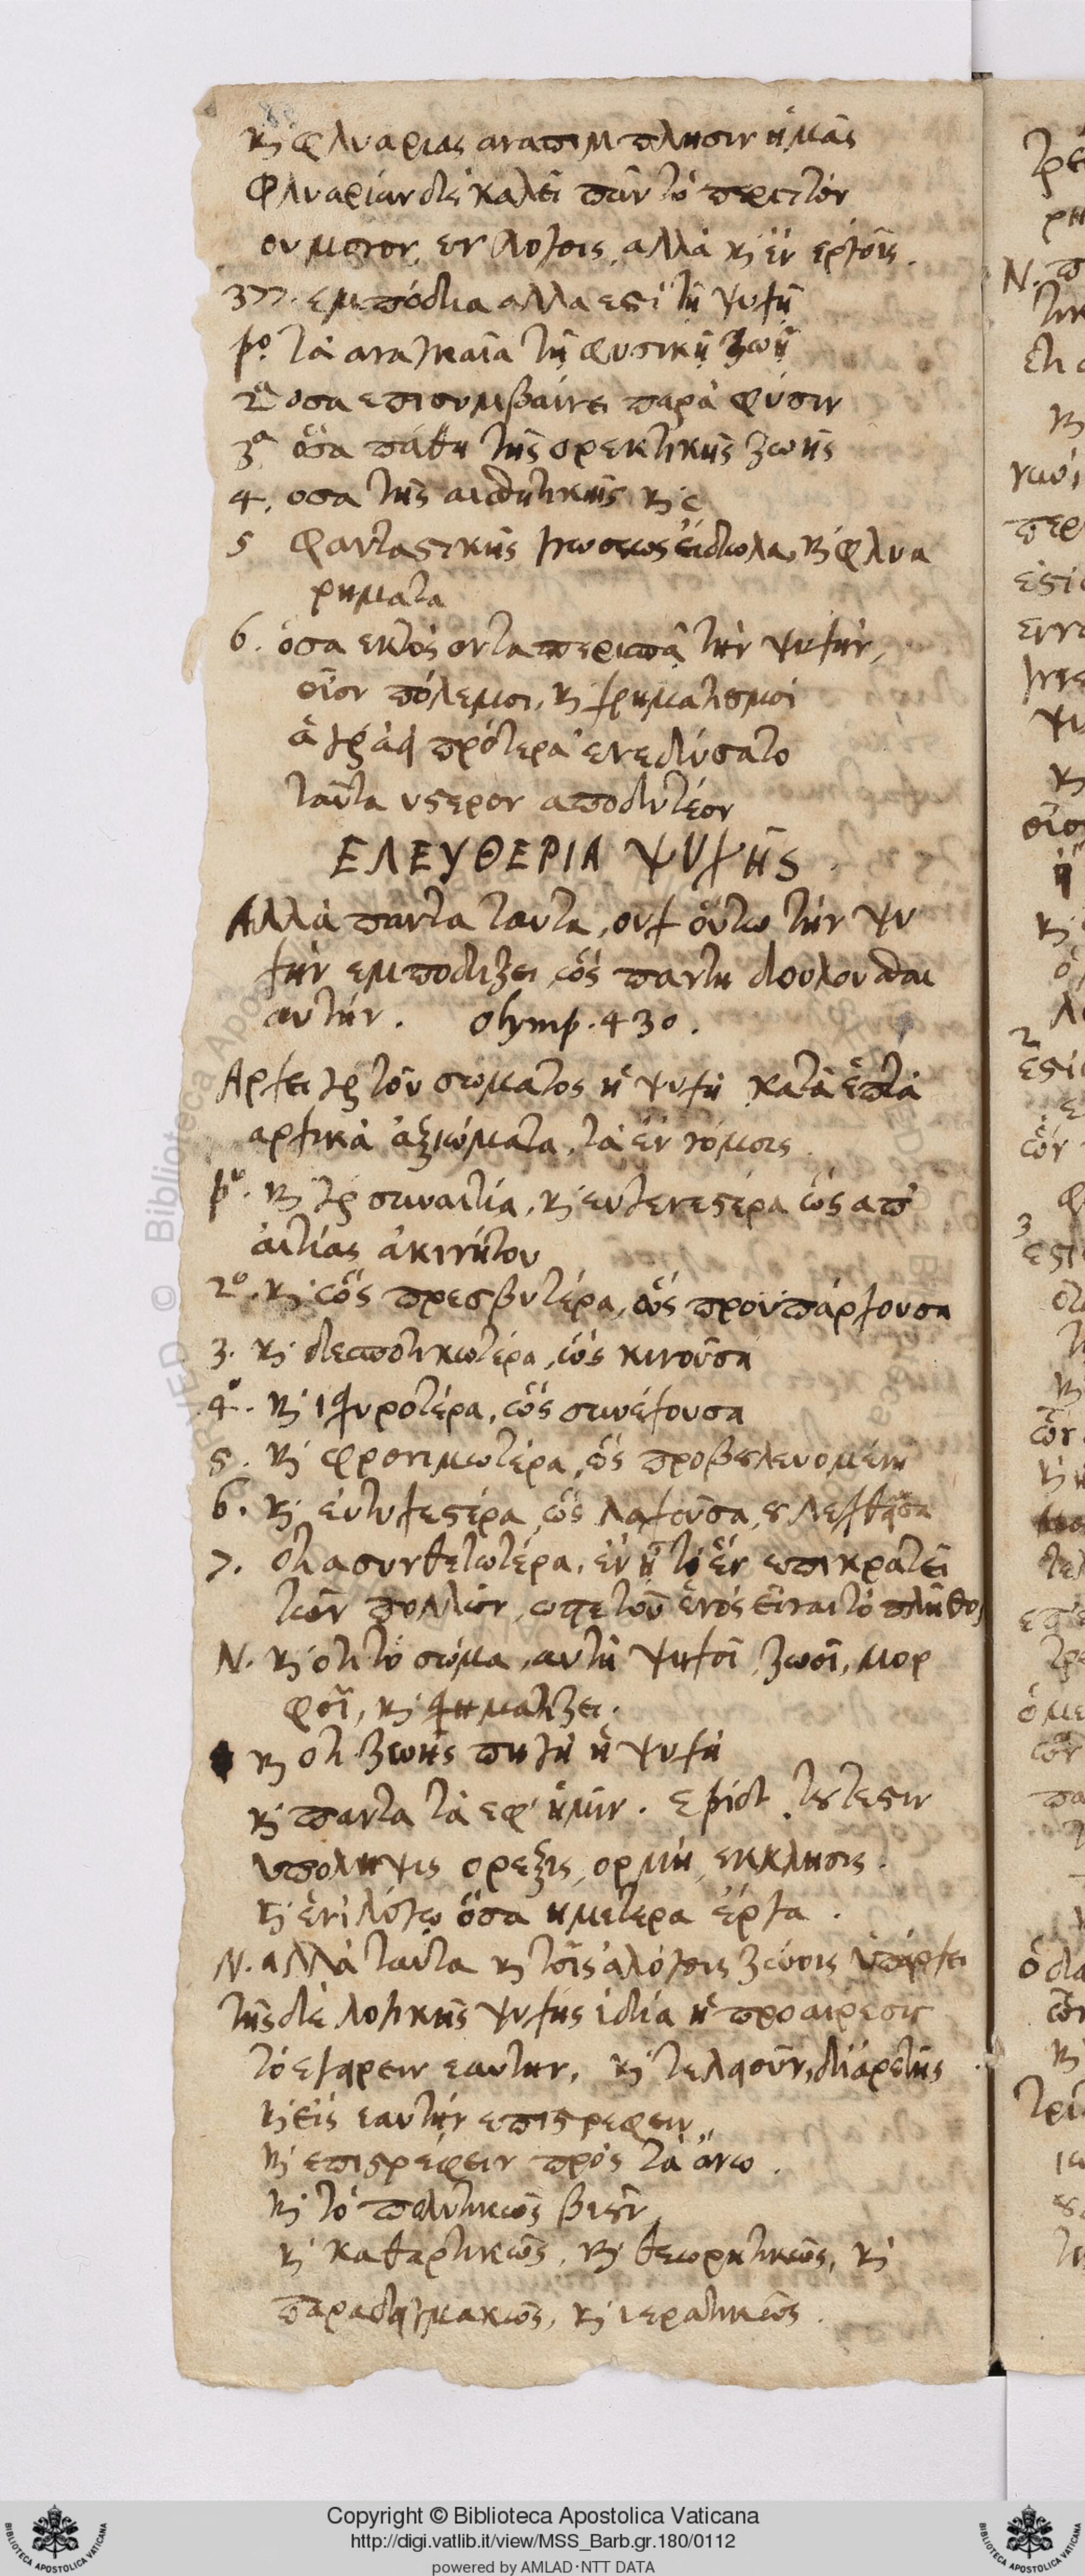 κ̀ φλυαριας αναπιμπλησιν ἡμᾶς
Φλυαρίαν δὲ καλεῖ πᾶν τὸ περιττὸν
ου μονον εν λογοις, αλλὰ κ̀ ἐν εργοις.
377. εμπόδια αλλα εστὶ τῇ ψυχῇ
pº. τὰ αναγκαῖα τῇ φυσικῇ ζωῇ
2ª οσα επισυμβαίνει παρὰ φύσιν
3ª ὅσα πάθη τῆς ορεκτικῆς ζωῆς
4. οσα τῆς αισθητικῆς κ̀
5 Φανταστικῆς γνωσεως εἴδωλα, κ̀ φλυα
ρηματα
6. ὁσα εκτὸς οντα περισπᾷ τὴν ψυχὴν,
οἷον πόλεμοι, κ̀ χρηματισμοὶ
ἃ γὰρ πρότερα ενεδύσατο
ταῦτα υστερον αποδυτέον
ΕΛΕΥΘΕΡΙΑ ΨΥΧΗΣ.
Αλλὰ παντα ταυτα, ουχ οὕτω τὴν ψυ
χὴν εμποδιζει, ὡς παντη δουλουσθαι
αυτήν. Olymp. 430.
Αρχει γὰρ τοῦ σώματος ἡ ψυχὴ κατὰ ἑπτὰ
αρχικὰ ἀξιώματα, τὰ ἐν νόμοις
pº. κ̀ γὰρ συναιτία, κ̀ ευγενεστέρα ὡς απ'
ἀιτίας ἀκινήτου
2º. κ̀ ὡς πρεσβυτέρα, ὡς προϋπάρχουσα
3. κ̀ δεσποτικωτέρα, ὡς κινοῦσα
4º. κ̀ ισχυροτέρα, ὡς συνέχουσα
5. κ̀ φρονιμωτέρα, ὡς προβουλευομένη
6. κ̀ ἐυτυχεστέρα, ὡς λαχοῦσα, ου λεχθεῖσα
7. ὅτι ασυνθετωτέρα, ἐν ᾗ τὸ ἓν επικρατεῖ
τῶν πολλῶν, ωστε τοῦ ἑνὸς εἶναι τὸ πλῆθος
N. κ̀ ὅτι τὸ σώμα, αυτὴ ψυχοῖ, ζωοῖ, μορ
φοῖ, κ̀ σχηματίζει.
κ̀ ὅτι ζωῆς πηγὴ ἡ ψυχὴ
κ̀ παντα τὰ εφ' ἡμῖν. Epict. τουτεστιν
υποληψις ορεξις, ορμὴ, εκκλησις.
κ̀ ἑνὶ λόγῳ ὅσα ημετερα ἔργα.
N. αλλὰ ταῦτα κ̀ τοῖς αλόγοις ζώοις ὑπάρχει
τῆς δὲ λογικῆς ψυχῆς ἰδία ἡ προαιρεσις
τὸ εγειρειν εαυτην, κ̀ τελειοῦν, δι' ἀρετῆς
κ̀ εἰς εαυτὴν επιστρεφειν
κ̀ επιστρέφειν πρὸς τὰ ἄνω.
κ̀ τὸ πολιτικῶς βιοῦν
κ̀ καθαρτικῶς, κ̀ θεωρητικῶς, κ̀
παραδειγματικῶς, κ̀ ιερατικῶς.
Copyright © Biblioteca Apostolica Vaticana
http://digi.vatlib.it/view/MSS_Barb.gr.180/0112
powered by AMLAD·NTT DATA
BIBLIOTECA APOSTOLICA VATICANA
BIBLIOTECA APOSTOLICA VATICANA